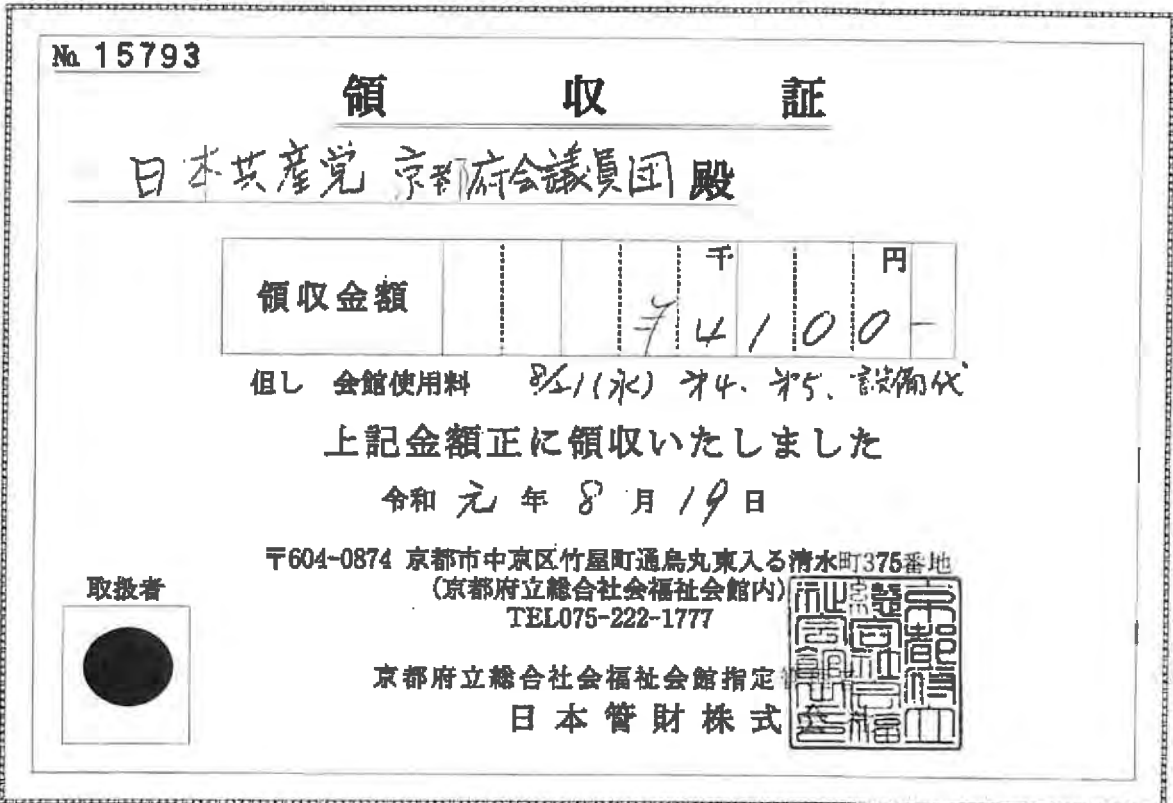 No. 15793
領収証
日本共産党 京都府会議員団 殿
千 円
領収金額 ¥4100-
但し 会館使用料 8/21(水) 第4、第5、設備代
上記金額正に領収いたしました
令和 元 年 8 月 19 日
〒604-0874 京都市中京区竹屋町通烏丸東入る清水町375番地
(京都府立総合社会福祉会館内)
TEL075-222-1777
取扱者
京都府立総合社会福祉会館指定
日本管財株式